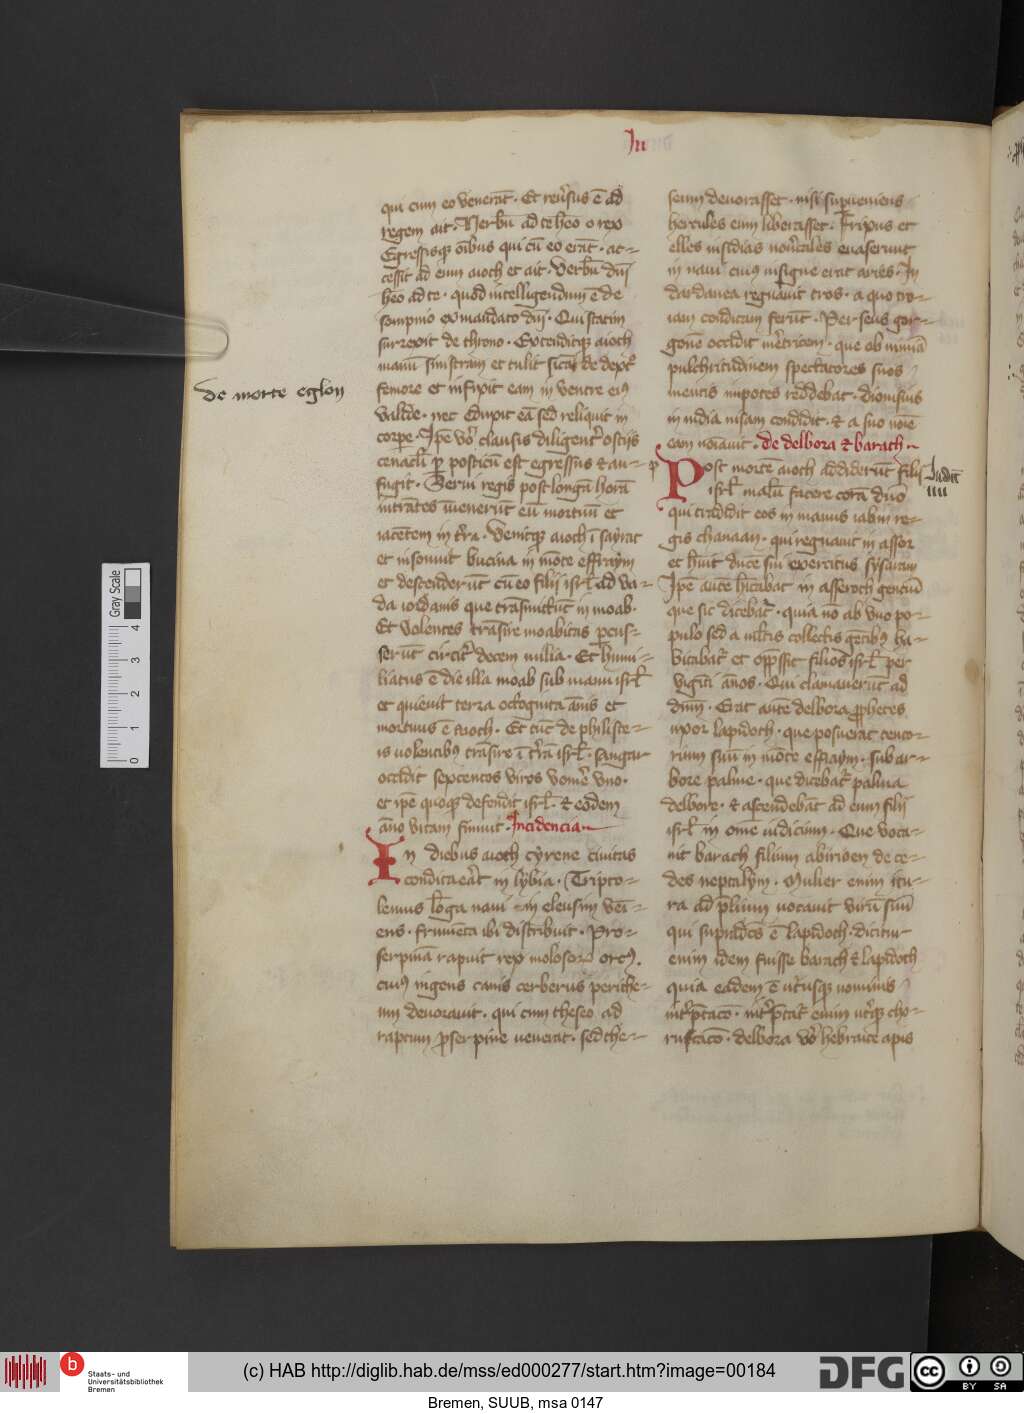 Iu
qui cum eo venerāt · Et reu͛sus ē ad
regem ait · Verbū ad te hēo o rex
Egressisqꝫ oībus qui cū eo erāt · ac-
cessit ad eum aioth et ait · verbū dnī
hēo ad te · quod intelligendum ē de
sompnio ex mandato dnī · Qui statim
surrexit de throno · Extenditqꝫ aioth
manū sinistram et tulit sicā de dext͛o
femore et infixit eam in ventre eiꝰ
valide · nec eduxit eā sed reliquit in
corpe · Ipē vo͛ clausis diligent͛ ostijs
cenacli p posticū est egressus et au-
fugit · Serui regis post longā horā
intrātes īuenerūt eū mortuū et
iacētem in t͛ra · Venitqꝫ aioth ī sayrat
et insonuit bucina in mōte effraym
et descenderūt cū eo filii isrl̄ ad va-
da iordanis que trāsmittūt in moab ·
Et volentes trāsire moabitas pcus-
serūt circit͛ decem milia · Et humi-
liatus ē die illa moab sub manu isrl̄
et quieuit terra octoginta ānis et
mortuus ē aioth · Et tūc de philiste-
is volentibꝰ trāsire ī t͛rā isrl̄ · sangar
occidit sexcentos viros vome͛ vno ·
et ipē quoqꝫ defendit isrl̄ · et eodem
āno vitam finiuit · Incidencia
In diebus aioth cyrene ciuitas
condita e͛at in lybia · Tripto-
lemus lōga naui in eleusim vēi-
ens · frumēta ibi distribuit · Pro-
serpinā rapuit rex molosoꝝ orcꝰ ·
cuiꝰ ingens canis cerberus perithe-
um deuorauit · qui cum theseo ad
raptum pserpine venerat · sed the-
de morte eglon
seum deuorasset · nisi supueniens
hercules eum liberasset · Frixus et
elles insidias nou͛cales euaserunt
in naui cuiꝰ insigne erat aries · In
dardanea regnauit tros · a quo tro-
iam conditam ferūt · Perseus gor-
gonē occidit me͛tricem · que ob nimiā
pulchritudinem spectatores suos
mentis impotes reddebat · dionisius
in india nisam condidit · et a suo noīe
eam noīauit · de delbora et barach
Post mortē aioth addiderūt filij
isrl̄ malū facere corā dn̄o
qui tradidit eos in manus iabin re-
gis chanaan · qui regnauit in assor
et h͛uit ducē sui exercitus sysaram
Ipē autē h͛itabat in asseroth gentiū
que sic dicebat͛ · quia nō ab vno po-
pulo sed a ml̄tis collectis gētibꝰ ha-
bitabat͛ et opp̄ssit filios isrl̄ per
viginti ānos · Qui clamauerūt ad
dnm̄ · Erat autē delbora ꝓphetes
uxor lapidoth · que posuerat tento-
rium suū in mōte effraym · sub ar-
bore palme · que dicebat͛ palma
delbore · et ascendebāt ad eum filij
isrl̄ in om̄e iudicium · Que voca-
uit barach filium abinoen de ce-
des neptalym · Mulier enim itu-
ra ad plium uocauit virū suū
qui supradc̄s ē lapidoth · dicitur
enim idem fuisse barach et lapidoth
quia eadem ē ut͛iusqꝫ nominis
int͛p̄taco · int͛p̄tat͛ enim ut͛qꝫ cho-
ruscaco · delbora vo͛ hebraice apis
Iudic̄
iiii
Gray Scale
0 1 2 3 4
b
Staats- und
Universitätsbibliothek
Bremen
(c) HAB http://diglib.hab.de/mss/ed000277/start.htm?image=00184
DFG
cc
BY SA
Bremen, SUUB, msa 0147